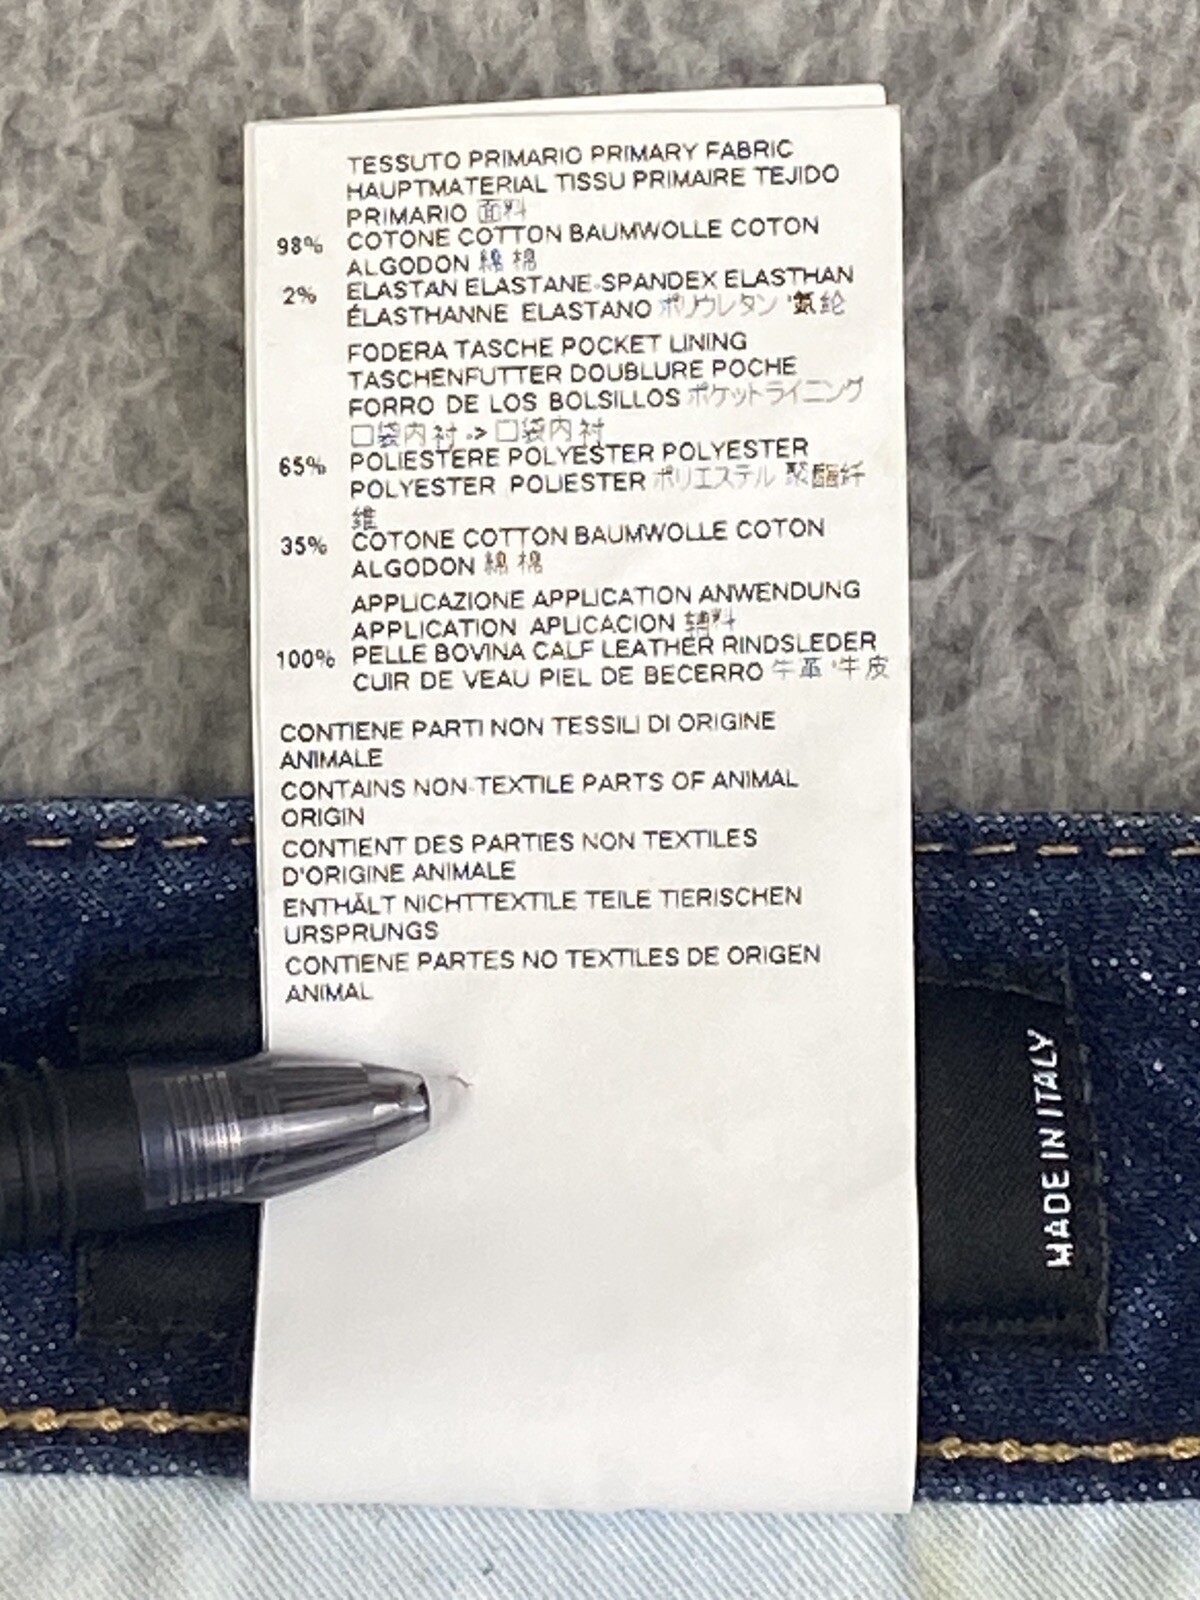 TESSUTO PRIMARIO PRIMARY FABRIC
HAUPTMATERIAL TISSU PRIMAIRE TEJIDO
PRIMARIO 面料
98% COTONE COTTON BAUMWOLLE COTON
ALGODON 綿 棉
2% ELASTAN ELASTANE-SPANDEX ELASTHAN
ÉLASTHANNE ELASTANO ポリウレタン 氨纶
FODERA TASCHE POCKET LINING
TASCHENFUTTER DOUBLURE POCHE
FORRO DE LOS BOLSILLOS ポケットライニング
口袋内衬 -> 口袋内衬
65% POLIESTERE POLYESTER POLYESTER
POLYESTER POLIESTER ポリエステル 聚酯纤
维
35% COTONE COTTON BAUMWOLLE COTON
ALGODON 綿 棉
APPLICAZIONE APPLICATION ANWENDUNG
APPLICATION APLICACION 辅料
100% PELLE BOVINA CALF LEATHER RINDSLEDER
CUIR DE VEAU PIEL DE BECERRO 牛革 牛皮
CONTIENE PARTI NON TESSILI DI ORIGINE
ANIMALE
CONTAINS NON-TEXTILE PARTS OF ANIMAL
ORIGIN
CONTIENT DES PARTIES NON TEXTILES
D'ORIGINE ANIMALE
ENTHÄLT NICHTTEXTILE TEILE TIERISCHEN
URSPRUNGS
CONTIENE PARTES NO TEXTILES DE ORIGEN
ANIMAL
MADE IN ITALY